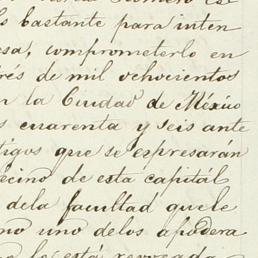 s bastante para inten
esa, comprometerlo en
trés de mil ochocientos
n la Ciudad de México
s cuarenta y seis ante
tigos que se espresarán
ecino de esta capitál
dela facultad quele
no uno delos apodera
no le está revocada